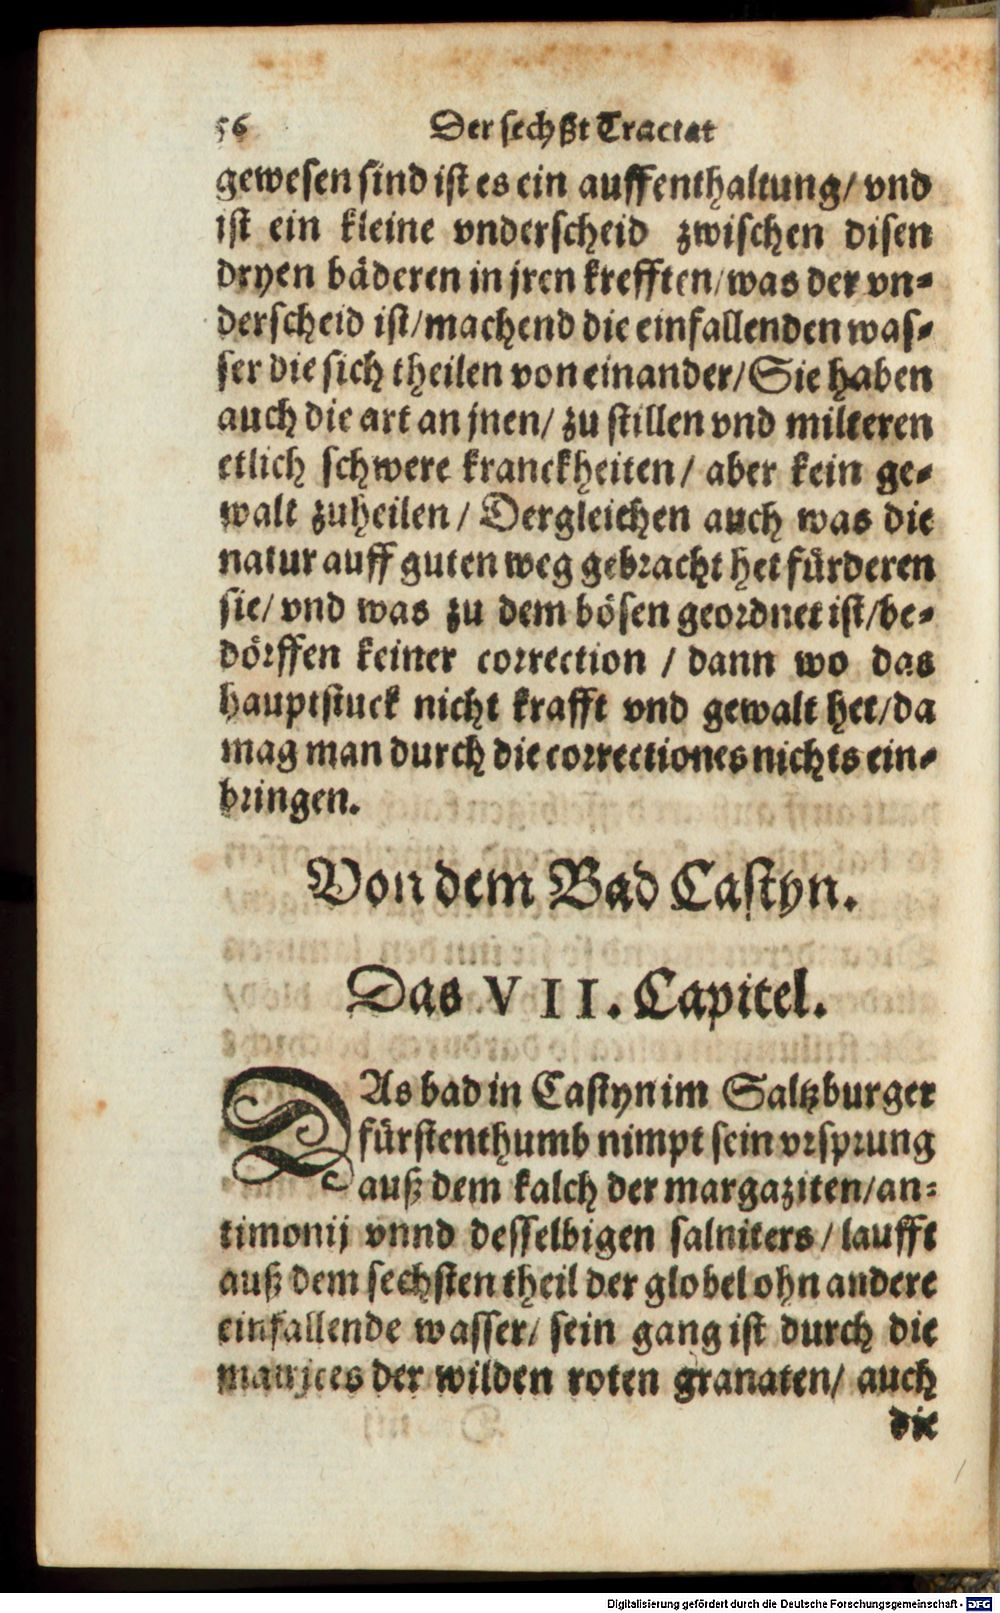 56 Der sechßt Tractat
gewesen sind ist es ein auffenthaltung/ vnd
ist ein kleine vnderscheid zwischen disen
dryen bäderen in jren krefften/ was der vn-
derscheid ist/ machend die einfallenden was-
ser die sich theilen von einander/ Sie haben
auch die art an jnen/ zu stillen vnd milteren
etlich schwere kranckheiten/ aber kein ge-
walt zuheilen/ Dergleichen auch was die
natur auff guten weg gebracht het fürderen
sie/ vnd was zu dem bösen geordnet ist/ be-
dörffen keiner correction / dann wo das
hauptstuck nicht krafft vnd gewalt het/ da
mag man durch die correctiones nichts ein-
bringen.
Von dem Bad Castyn.
Das VII. Capitel.
DAs bad in Castyn im Saltzburger
fürstenthumb nimpt sein vrsprung
auß dem kalch der margaziten/ an-
timonij vnnd desselbigen salniters/ laufft
auß dem sechsten theil der globel ohn andere
einfallende wasser/ sein gang ist durch die
matrices der wilden roten granaten/ auch
die
Digitalisierung gefördert durch die Deutsche Forschungsgemeinschaft - DFG